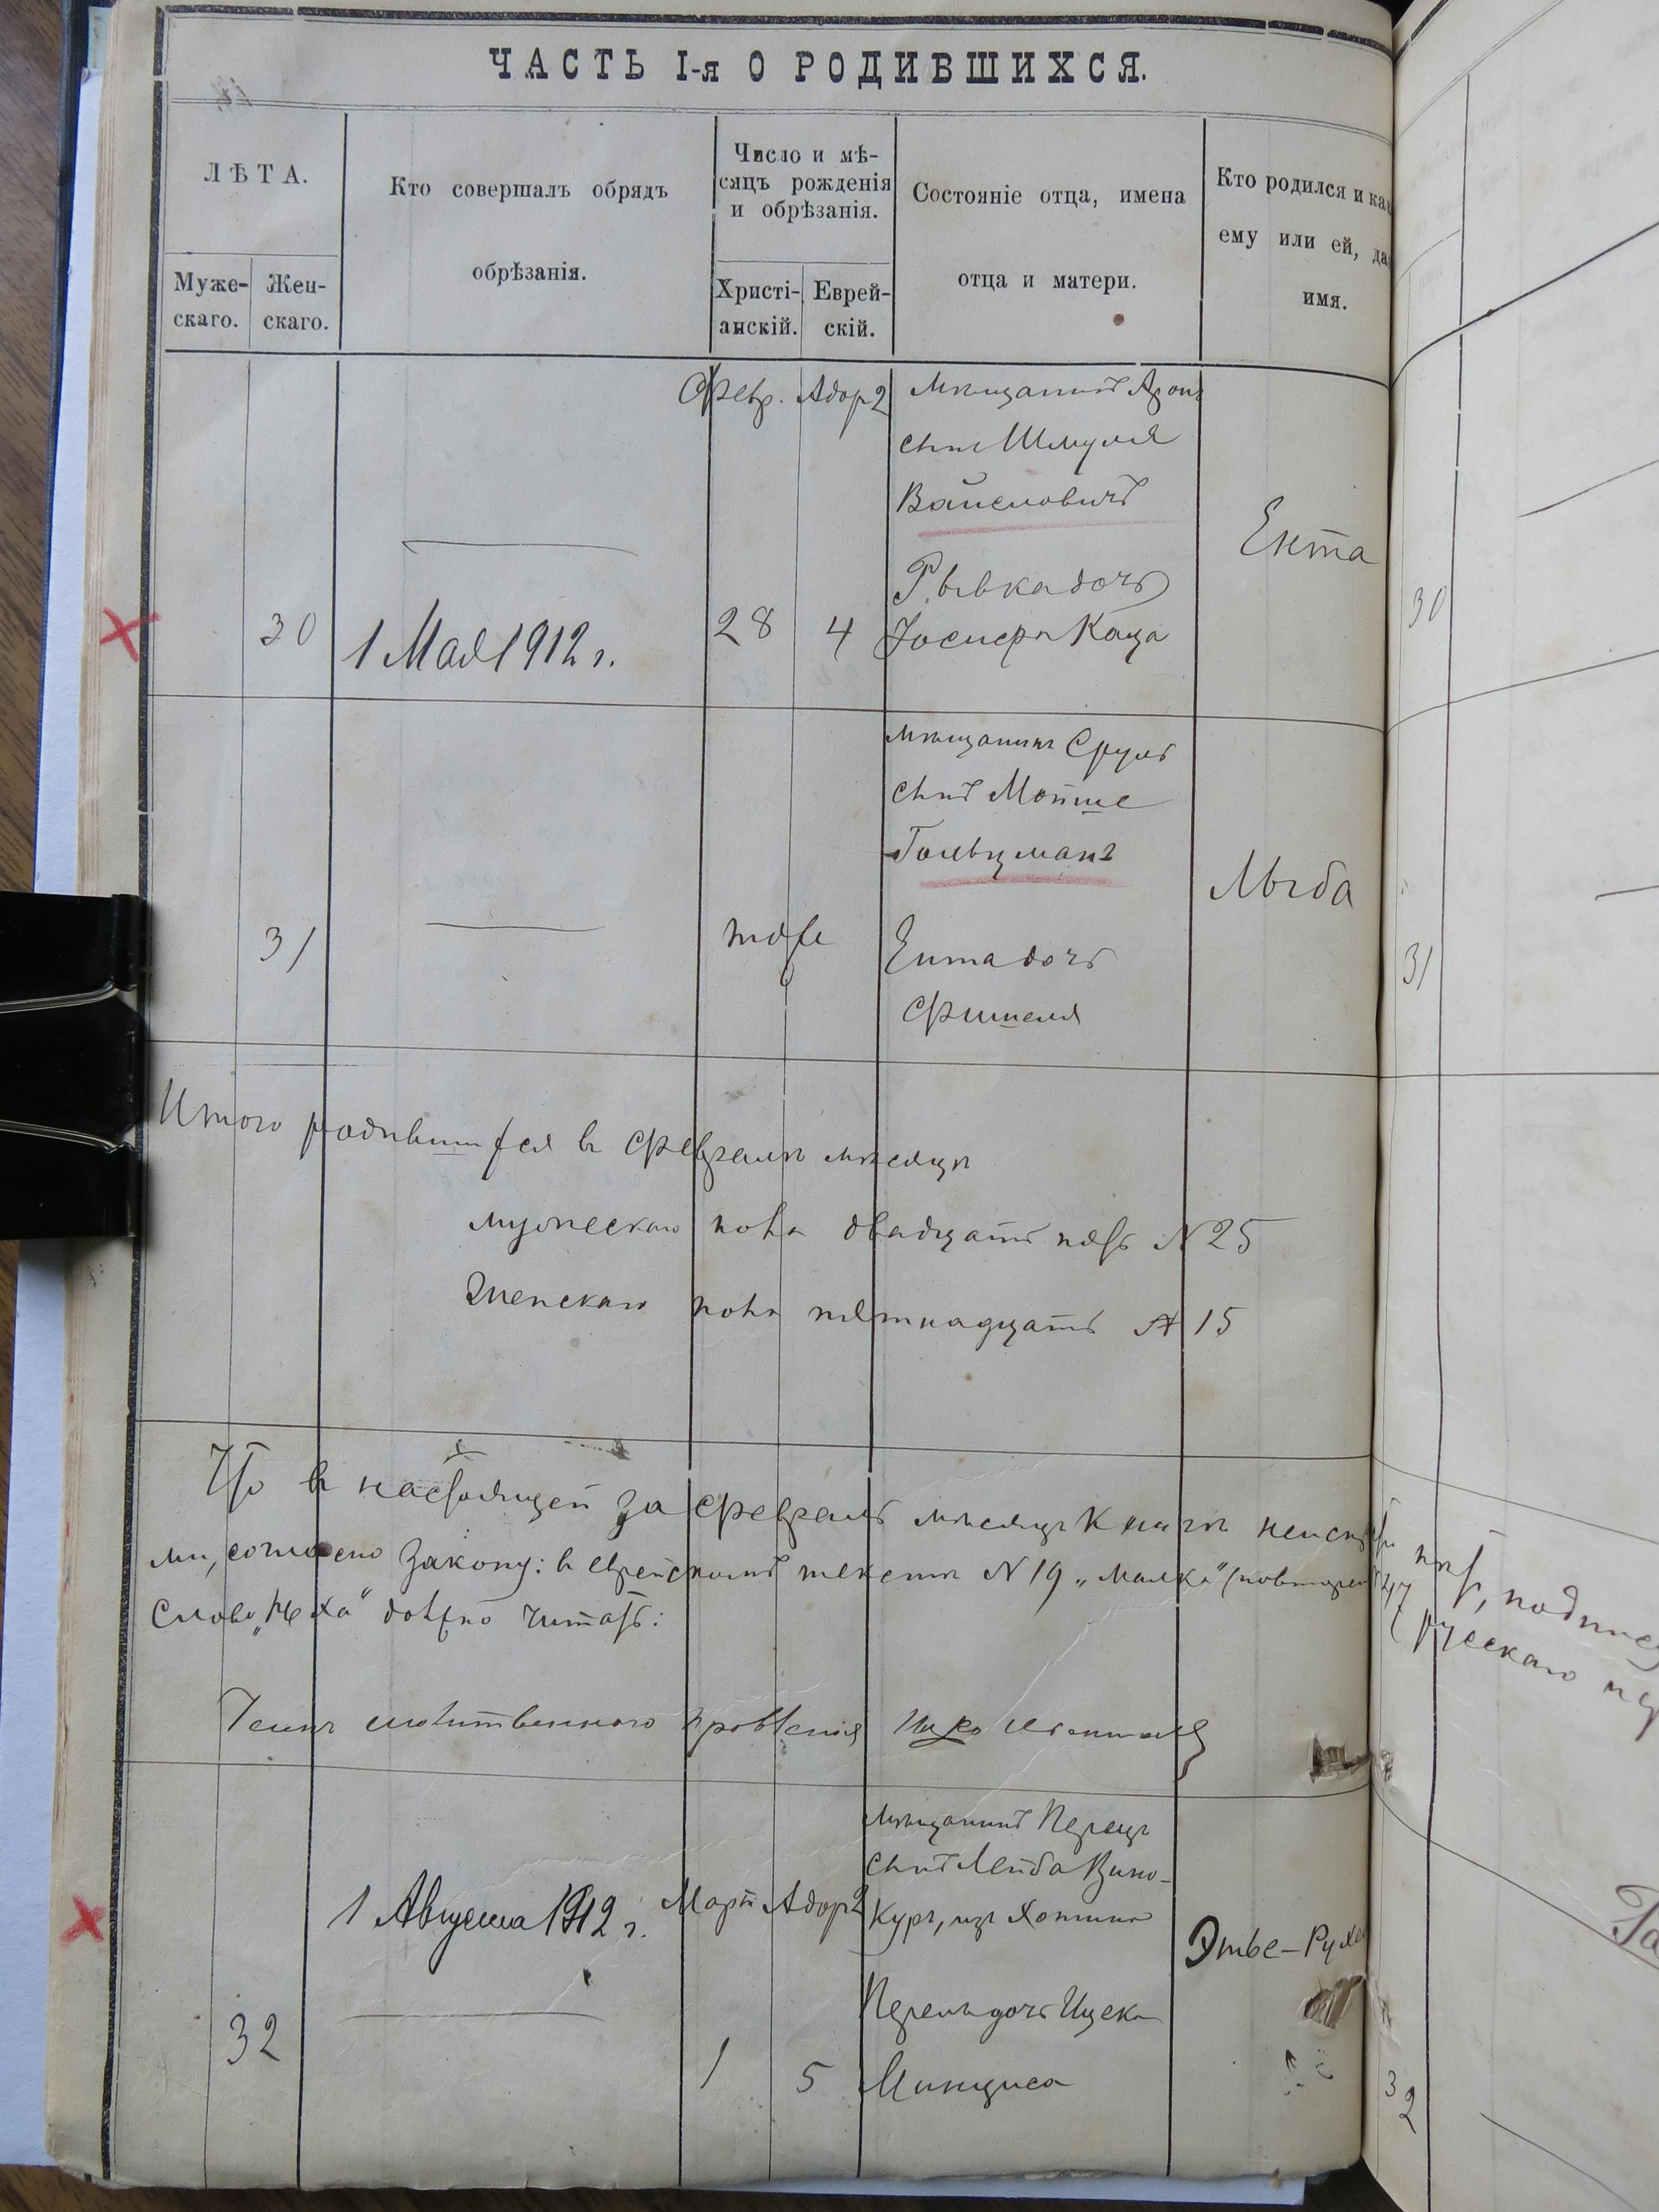 ЧАСТЬ I-я О РОДИВШИХСЯ.
ЛѢТА.
Муже-
скаго.
Жен-
скаго.
Кто совершалъ обрядъ
обрѣзанія.
Число и мѣ-
сяцъ рожденія
и обрѣзанія.
Христі-
анскій.
Еврей-
скій.
Состояніе отца, имена
отца и матери.
Кто родился и как
ему или ей, да
имя.
30
1 Мая 1912 г.
Февр. Адар 2
28 4
мѣщанинъ Аронъ
сынъ Шмуля
Вайсловичъ
Рывка дочь
Іосифа Каца
Ента
30
31
тоже
мѣщанинъ Сруль
сынъ Мотше
Гольцманъ
Ента дочь
Фишеля
Лыба
31
Итого родившихся въ Февралѣ мѣсяцѣ
мужескаго пола двадцать пять № 25
Женскаго пола пятнадцать № 15
Что въ настоящей за Февраль мѣсяцъ Книгѣ
ми, согласно закону: въ еврейскомъ текстѣ № 19 „Малка"
Слово должно читать:
русскаго
молитвенного правленія
32
1 Августа 1912 г.
Мартъ Адар 2
1 5
мѣщанинъ Перецъ
сынъ Лейба Вино-
куръ, изъ Хотина
Перель дочь Ицека
Этье-Рухл
32